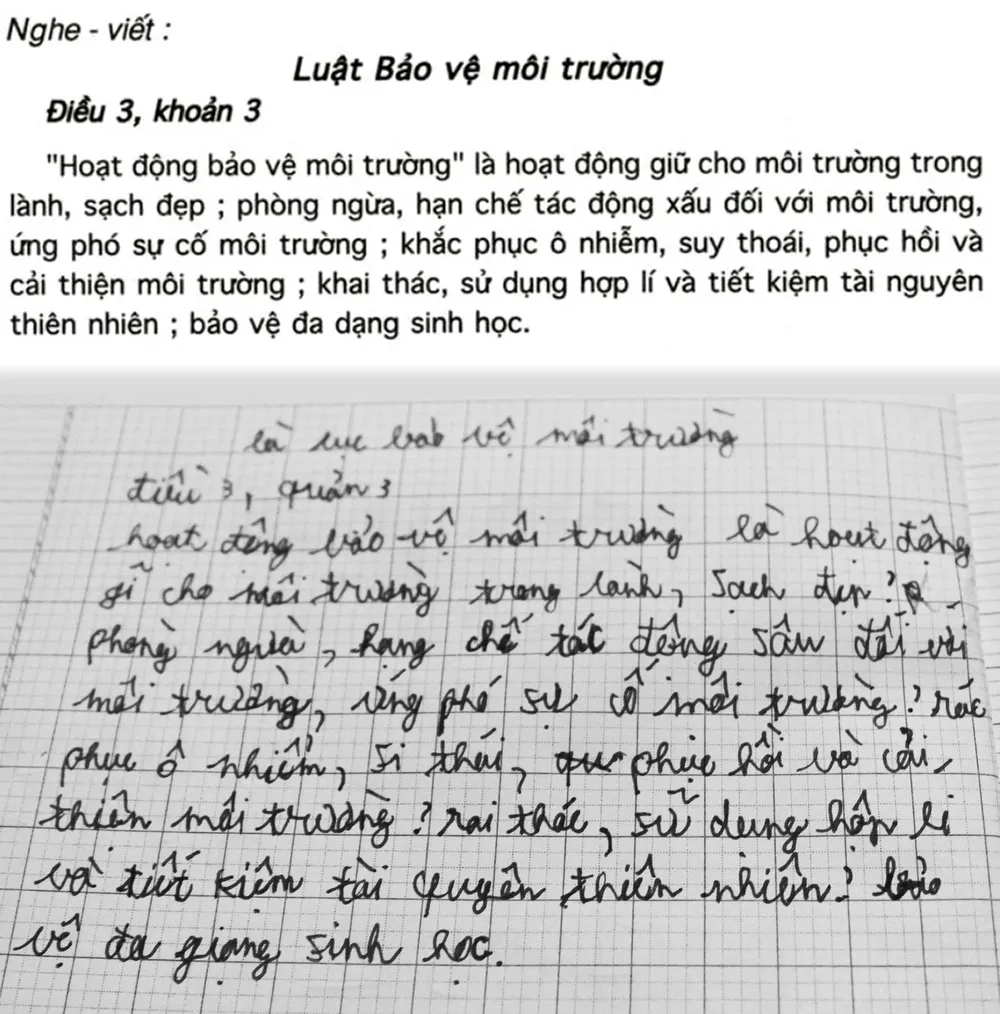 Nghe - viết :
Luật Bảo vệ môi trường
Điều 3, khoản 3
"Hoạt động bảo vệ môi trường" là hoạt động giữ cho môi trường trong
lành, sạch đẹp ; phòng ngừa, hạn chế tác động xấu đối với môi trường,
ứng phó sự cố môi trường ; khắc phục ô nhiễm, suy thoái, phục hồi và
cải thiện môi trường ; khai thác, sử dụng hợp lí và tiết kiệm tài nguyên
thiên nhiên ; bảo vệ đa dạng sinh học.
là lục bab vệ môi trường
điều 3, quản 3
hoạt động bảo vệ môi trường là hoạt động
gĩ cho môi trường trong lành, sạch đẹp?
phòng ngừa, hạng chế tác động sâu đối với
môi trường, ứng phó sự cố môi trường? rác
phục ô nhiểm, si thái, phục hồi và cải
thiện môi trường? rai thác, sữ dụng hộp li
và tiết kiệm tài quyên thiên nhiên? bảo
vệ đa giạng sinh học.